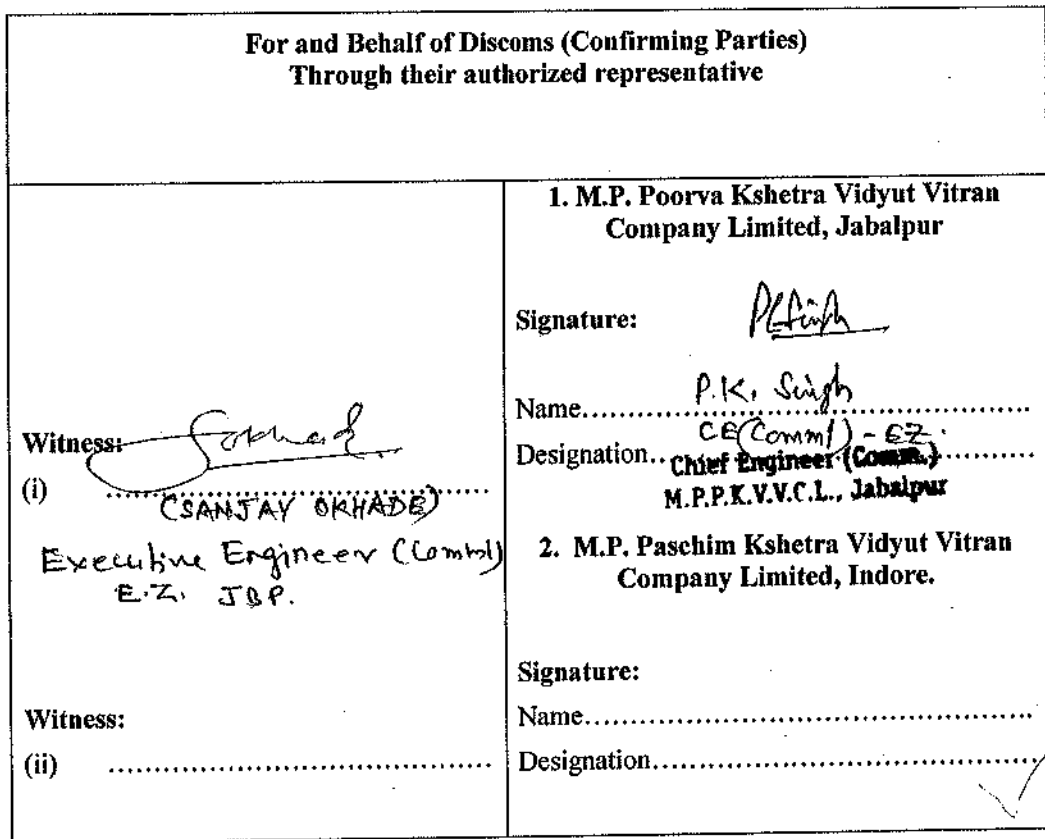 For and Behalf of Discoms (Confirming Parties)
Through their authorized representative
Witness:
(i) ................................................
(SANJAY OKHADE)
Executive Engineer (Comml)
E.Z. JBP.
Witness:
(ii) ................................................
1. M.P. Poorva Kshetra Vidyut Vitran
Company Limited, Jabalpur
Signature: PKSingh
Name P.K. Singh
Designation.. CE(Comml) - EZ.
Chief Engineer (Comm.)
M.P.P.K.V.V.C.L., Jabalpur
2. M.P. Paschim Kshetra Vidyut Vitran
Company Limited, Indore.
Signature:
Name................................................
Designation................................................